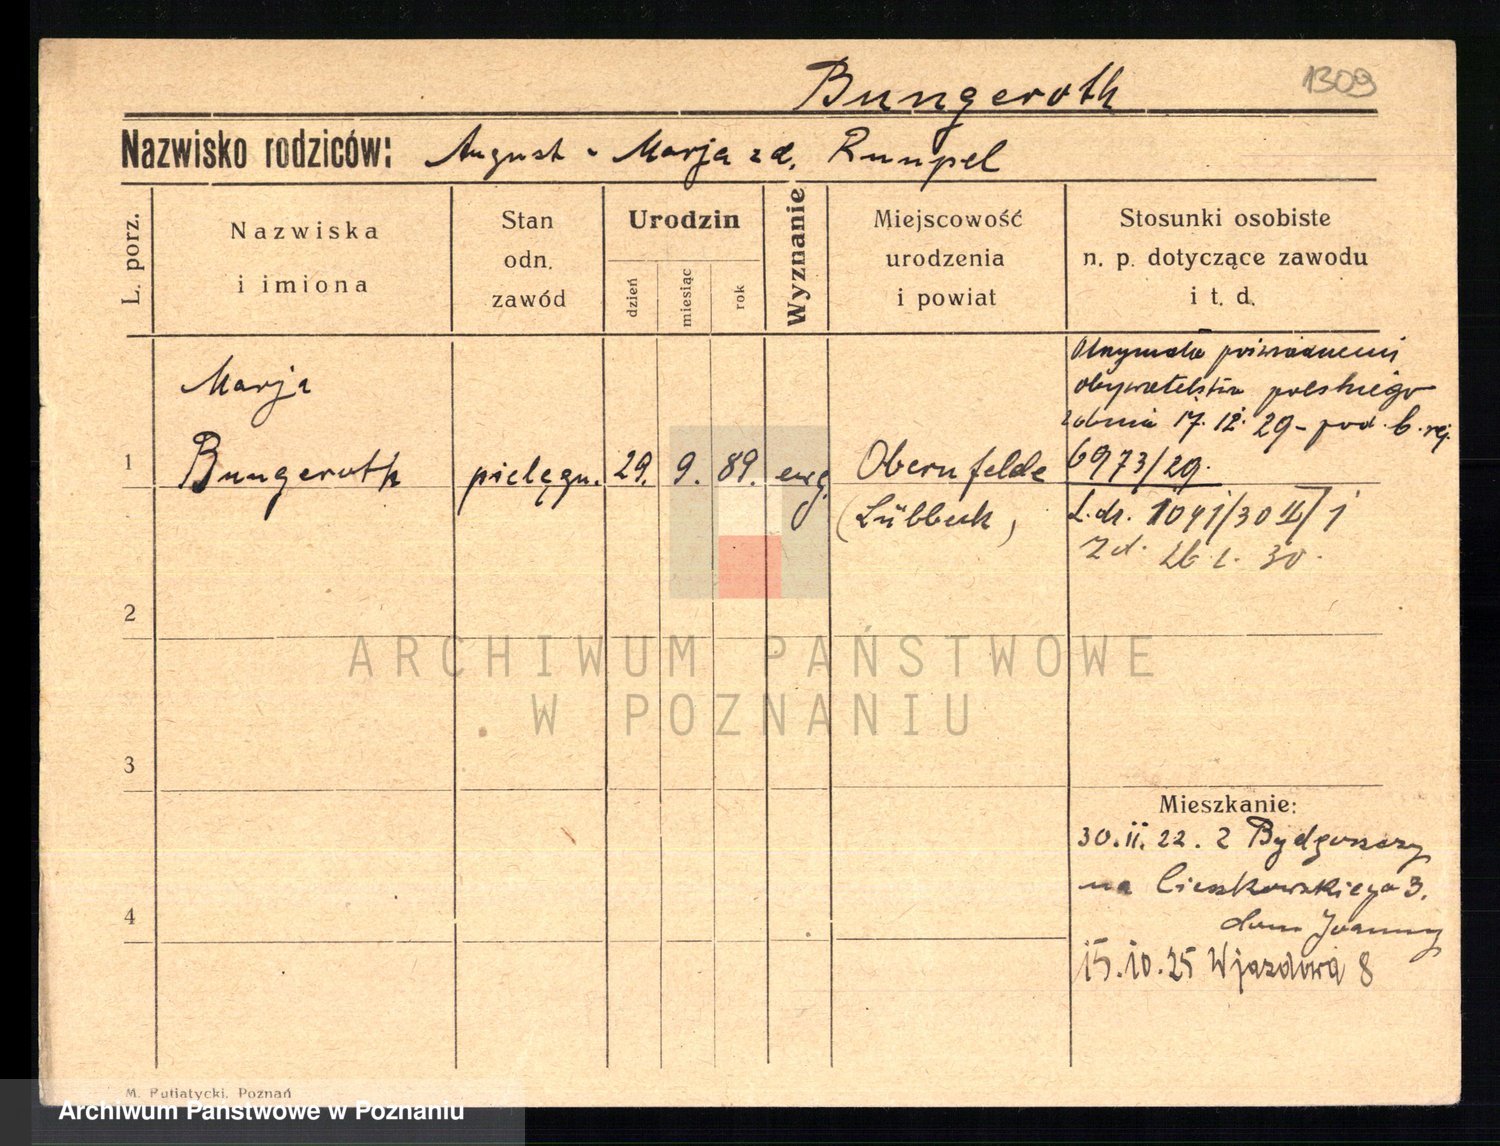 Bungeroth
1309
Nazwisko rodziców: August i Marja z d. Rumpel
L. porz.
Nazwiska
i imiona
Stan
odn.
zawód
Urodzin
dzień
miesiąc
rok
Wyznanie
Miejscowość
urodzenia
i powiat
Stosunki osobiste
n. p. dotyczące zawodu
i t. d.
Marja
1 Bungeroth pielęgn. 29. 9. 89. ewg. Obernfelde
(Lübbeck)
obywatelstwa polskiego
z dnia 17. 12. 29 - pod l. rej.
6973/29.
L. dz. 1041/30 II/1
Z d. 26. 1. 30.
2
3
4
Mieszkanie:
30. 11. 22. z Bydgoszczy
na Cieszkowskiego 3.
dom Joanny
15. 10. 25 Wjazdowa 8
ARCHIWUM PAŃSTWOWE
W POZNANIU
M. Putiatycki, Poznań
Archiwum Państwowe w Poznaniu